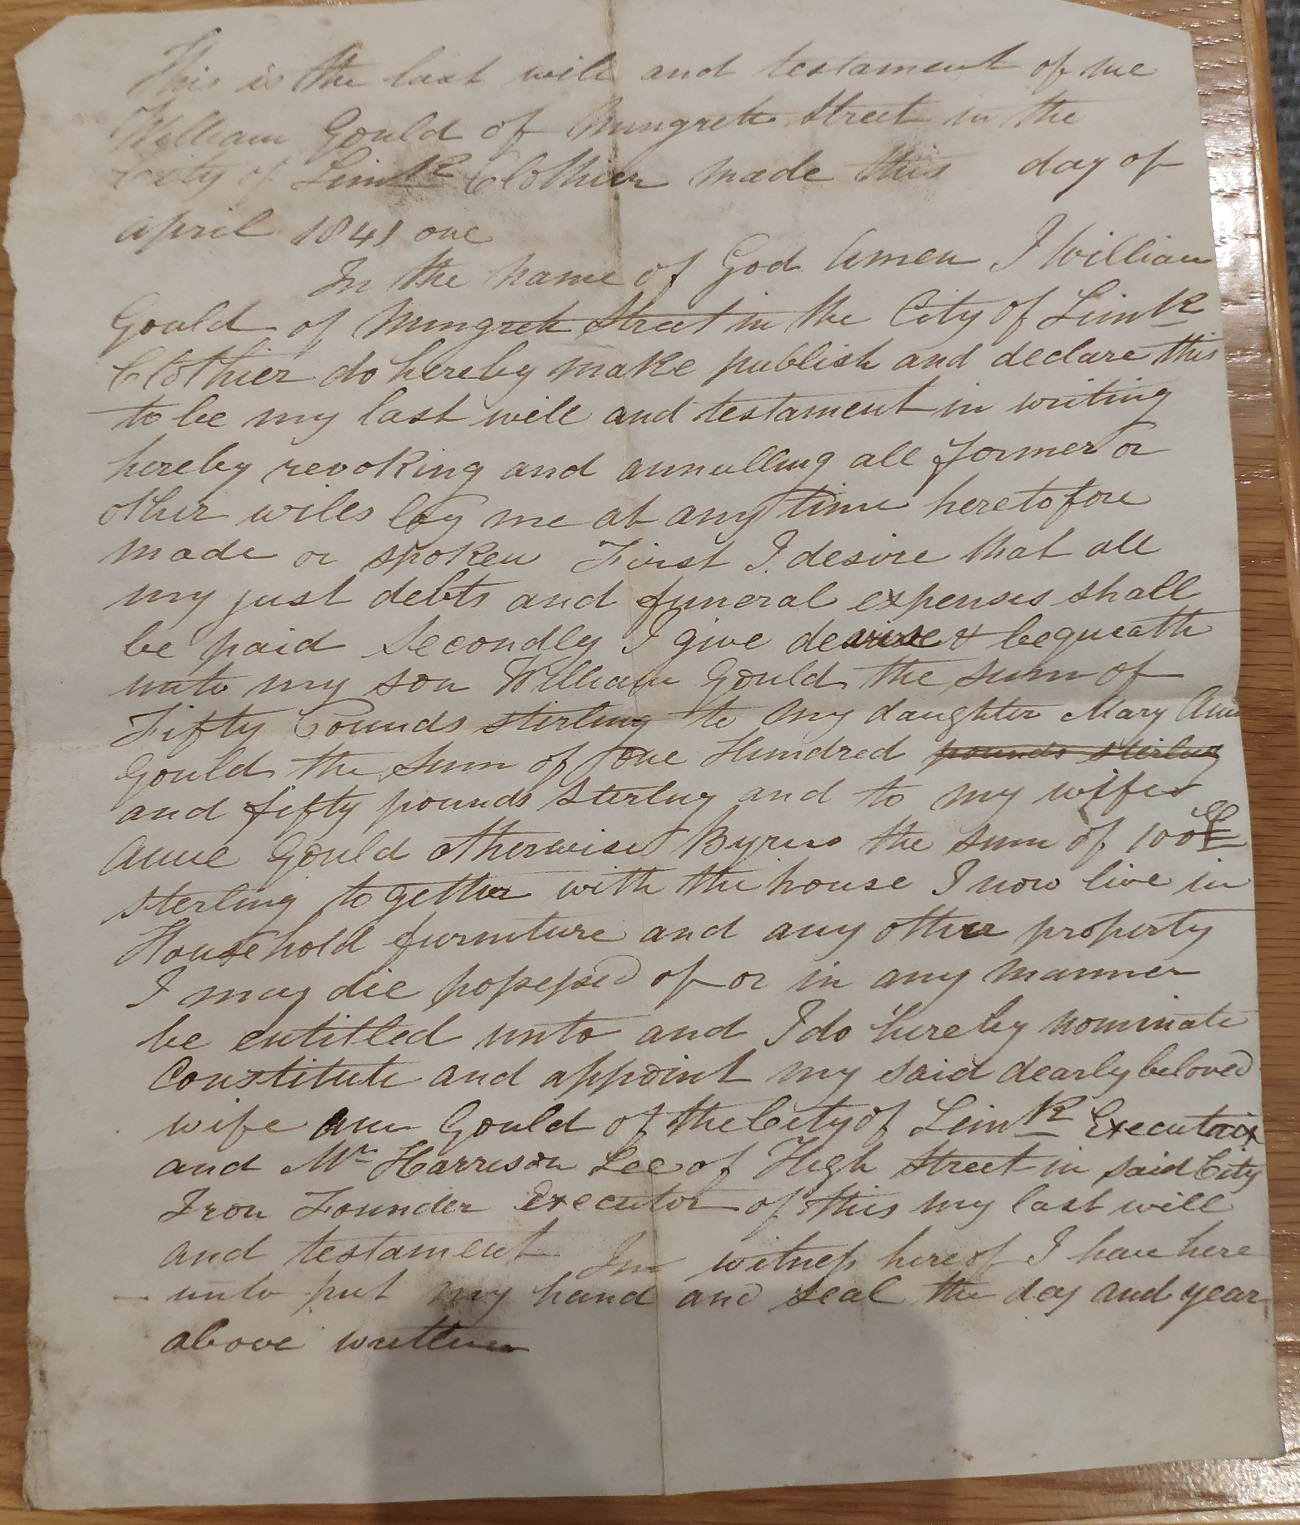 This is the last will and testament of me
William Gould of Mungrett Street in the
City of Limk Clothier made this day of
april 1841 one
In the name of God Amen I William
Gould of Mungrett Street in the City of Limk
Clothier do hereby make publish and declare this
to be my last will and testament in writing
hereby revoking and annulling all former or
other wills by me at any time heretofore
made or spoken First I desire that all
my just debts and funeral expenses shall
be paid Secondly I give devise & bequeath
unto my son William Gould the sum of
Fifty Pounds sterling to my daughter Mary Ann
Gould the sum of one Hundred pounds sterling
and fifty pounds sterling and to my wife
Anne Gould otherwise Byrns the sum of 100£
sterling together with the house I now live in
Household furniture and any other property
I may die possessed of or in any manner
be entitled unto and I do hereby nominate
Constitute and appoint my said dearly beloved
wife Ann Gould of the City of Limk Executrix
and Mr Harrison Lee of High Street in said City
Iron Founder Executor of this my last will
and testament In witness here of I have here
unto put my hand and seal the day and year
above written